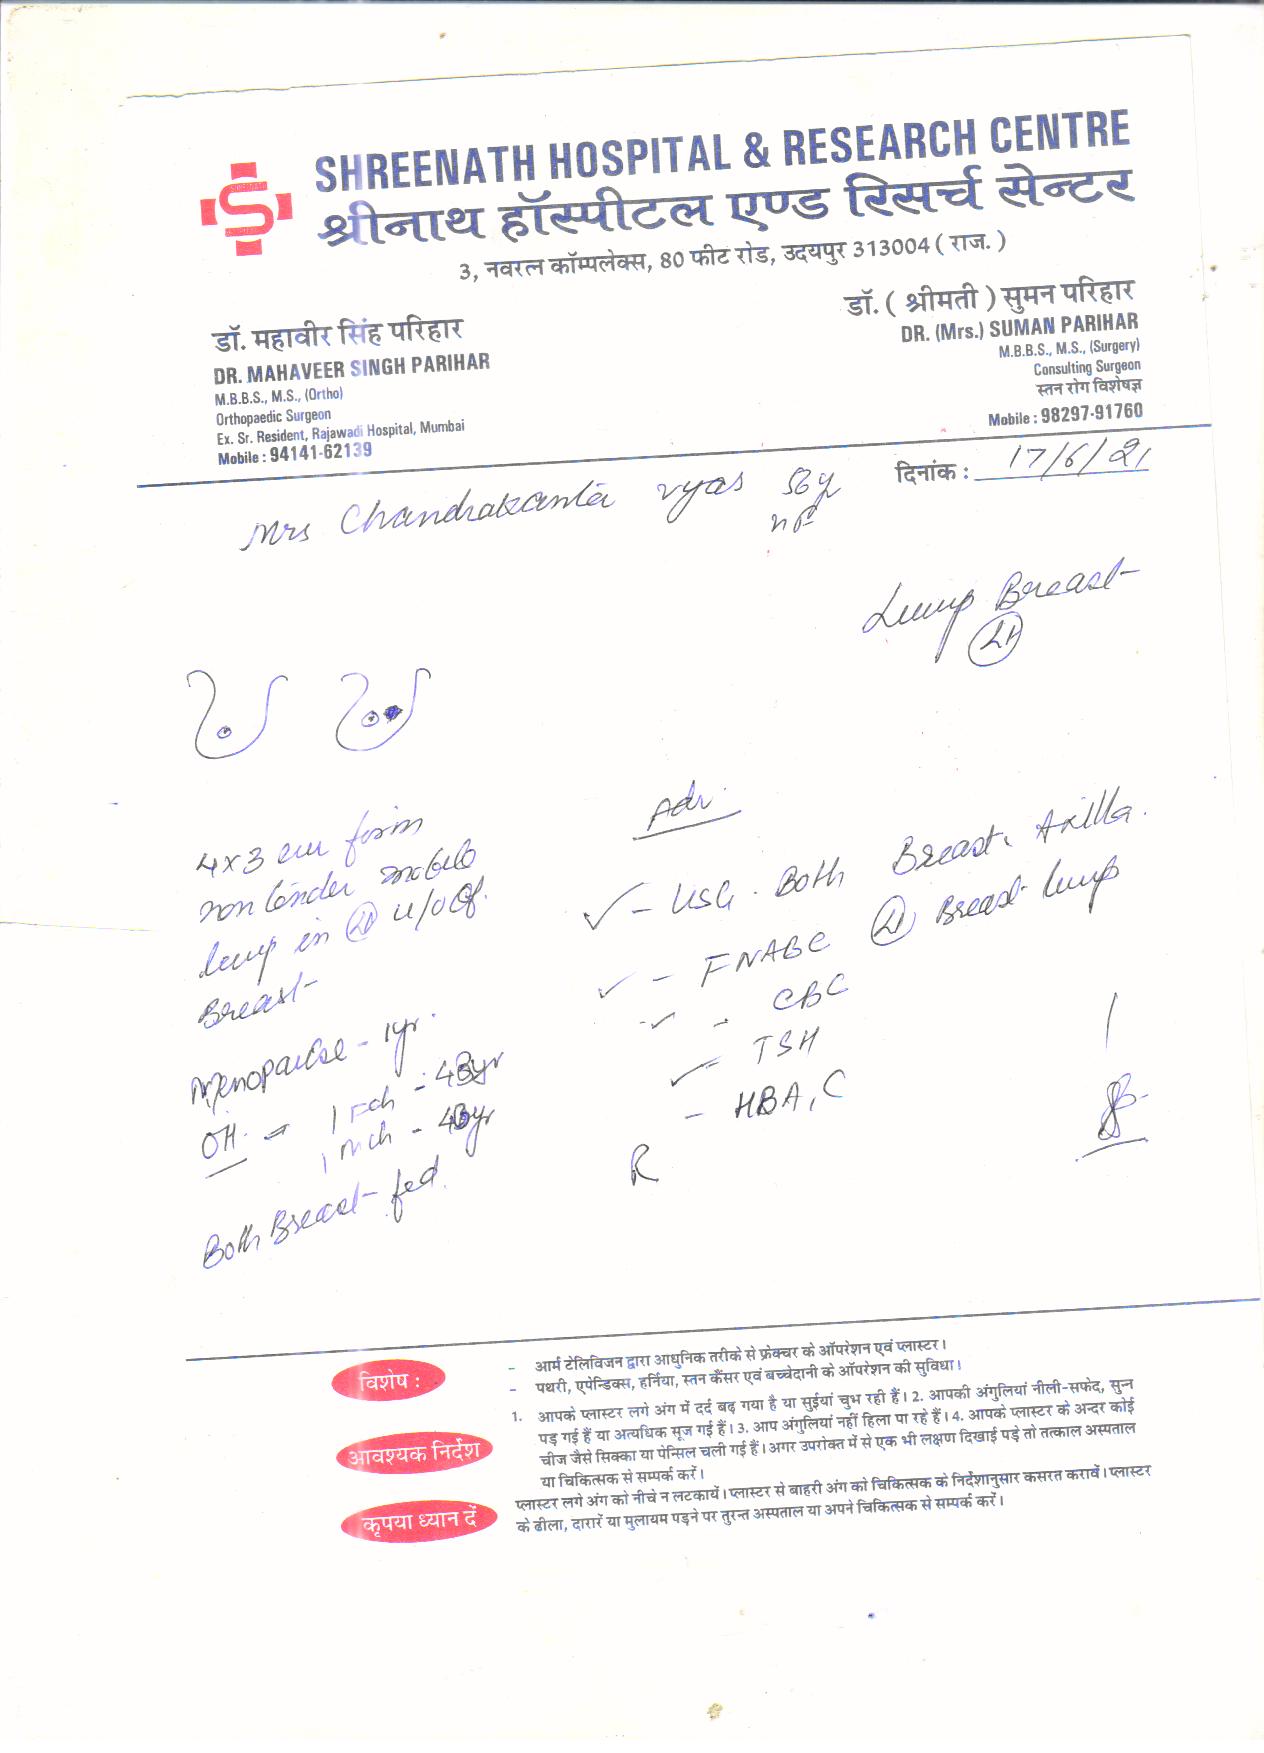 SHREENATH HOSPITAL & RESEARCH CENTRE
श्रीनाथ हॉस्पीटल एण्ड रिसर्च सेन्टर
3, नवरत्न कॉम्पलेक्स, 80 फीट रोड, उदयपुर 313004 ( राज. )
डॉ. महावीर सिंह परिहार
DR. MAHAVEER SINGH PARIHAR
M.B.B.S., M.S., (Ortho)
Orthopaedic Surgeon
Ex. Sr. Resident, Rajawadi Hospital, Mumbai
Mobile : 94141-62139
डॉ. ( श्रीमती ) सुमन परिहार
DR. (Mrs.) SUMAN PARIHAR
M.B.B.S., M.S., (Surgery)
Consulting Surgeon
स्तन रोग विशेषज्ञ
Mobile : 98297-91760
दिनांक : 17/6/21
Mrs Chandrakanta vyas
Lump Breast
Lt
4x3 cm firm
non tender mobile
lump in Lt
Breast
Menopause - 1yr.
OH - 1 Fch -
1 Mch -
Both Breast fed
Adv.
- USG. Both Breast. Axilla.
- FNABC Lt Breast lump
- CBC
TSH
- HBA1C
R
विशेष :
- आर्म टेलिविजन द्वारा आधुनिक तरीके से फ्रेक्चर के ऑपरेशन एवं प्लास्टर।
- पथरी, एपेन्डिक्स, हर्निया, स्तन कैंसर एवं बच्चेदानी के ऑपरेशन की सुविधा।
आवश्यक निर्देश
1. आपके प्लास्टर लगे अंग में दर्द बढ़ गया है या सुईयां चुभ रही हैं। 2. आपकी अंगुलियां नीली-सफेद, सुन्न
पड़ गई हैं या अत्यधिक सूज गई हैं। 3. आप अंगुलियां नहीं हिला पा रहे हैं। 4. आपके प्लास्टर के अन्दर कोई
चीज जैसे सिक्का या पेन्सिल चली गई हैं। अगर उपरोक्त में से एक भी लक्षण दिखाई पड़े तो तत्काल अस्पताल
या चिकित्सक से सम्पर्क करें।
कृपया ध्यान दें
प्लास्टर लगे अंग को नीचे न लटकायें। प्लास्टर से बाहरी अंग को चिकित्सक के निर्देशानुसार कसरत करावें। प्लास्टर
के ढीला, दारारें या मुलायम पड़ने पर तुरन्त अस्पताल या अपने चिकित्सक से सम्पर्क करें।